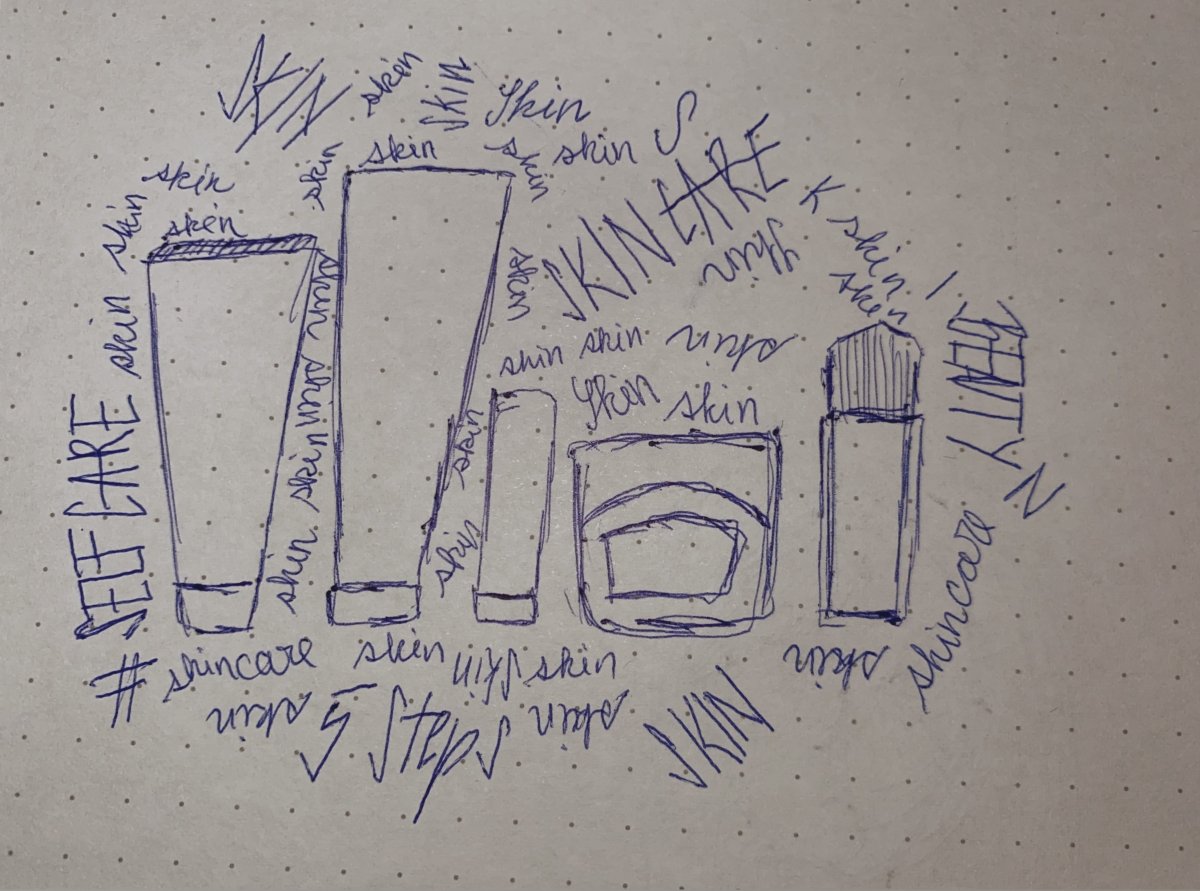 SKIN
skin
SKIN
Skin
skin
skin
skin
skin
S
skin
skin
skin
SKINCARE
K
skin
skin
skin
I
Skin
skin
skin
skin
skin
skin
Skin
skin
BEAUTY
N
SELF CARE
skin
skin
skin
skin
skin
skin
skin
#skincare
skin
skin
skin
skin
skincare
skin
5 Steps
skin
SKIN